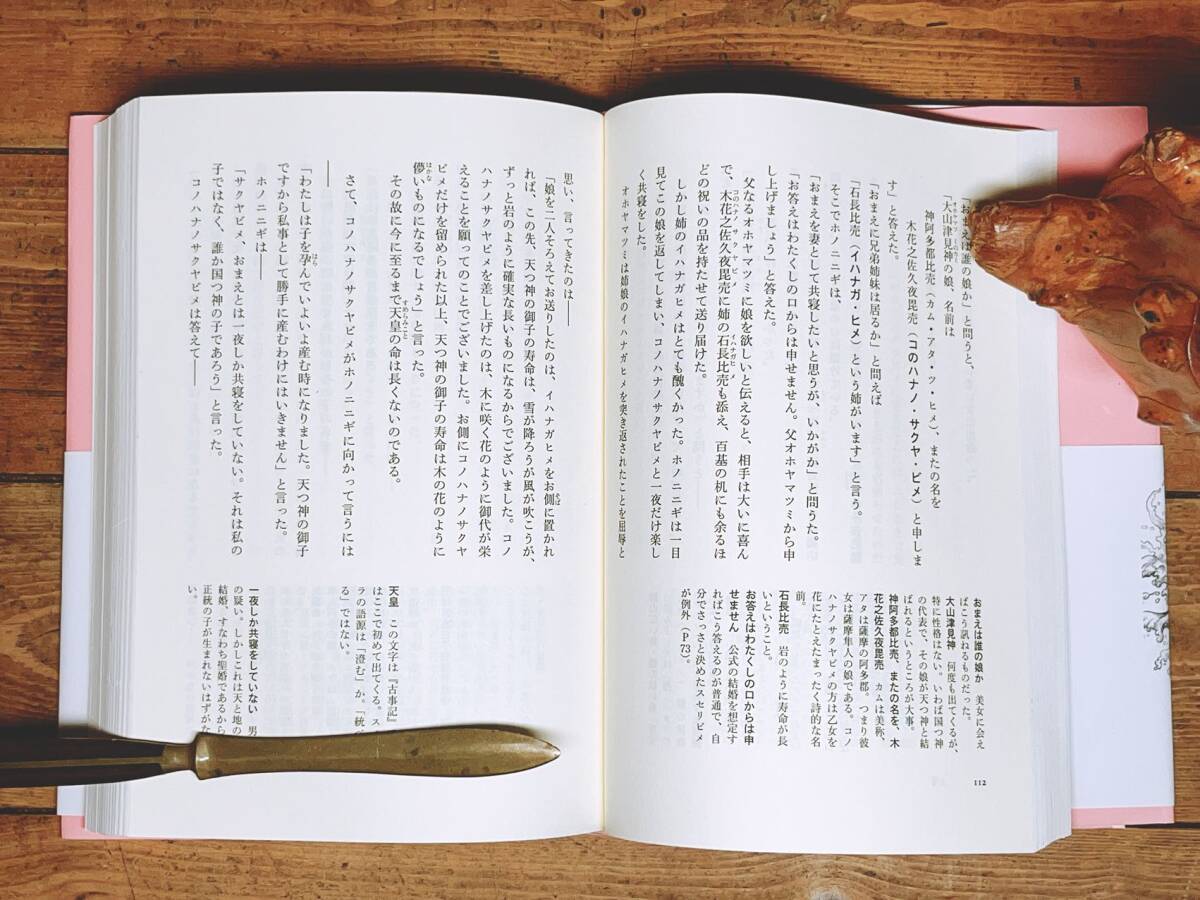 「おまえは誰の娘か」と問うと、
「大山津見神の娘、名前は
神阿多都比売（カム・アタ・ツ・ヒメ）、またの名を
木花之佐久夜毘売（コのハナノ・サクヤ・ビメ）と申しま
す」と答えた。
「おまえに兄弟姉妹は居るか」と問えば
「石長比売（イハナガ・ヒメ）という姉がいます」と言う。
そこでホノニニギは、
「おまえを妻として共寝したいと思うが、いかがか」と問うた。
「お答えはわたくしの口からは申せません。父オホヤマツミから申
し上げましょう」と答えた。
父なるオホヤマツミに娘を欲しいと伝えると、相手は大いに喜ん
で、木花之佐久夜毘売に姉の石長比売も添え、百基の机にも余るほ
どの祝いの品を持たせて送り届けた。
しかし姉のイハナガヒメはとても醜くかった。ホノニニギは一目
見てこの娘を返してしまい、コノハナノサクヤビメと一夜だけ楽し
く共寝をした。
オホヤマツミは姉娘のイハナガヒメを突き返されたことを屈辱と
おまえは誰の娘か　美女に会え
ばこう訊ねるものだった。
大山津見神　何度も出てくるが、
特に性格はない。いわば国つ神
の代表で、その娘が天つ神と結
ばれるというところが大事。
神阿多都比売、またの名を、木
花之佐久夜毘売　カムは美称、
アタは薩摩の阿多郡。つまり彼
女は薩摩隼人の娘である。コノ
ハナノサクヤビメの方は乙女を
花にたとえたまったく詩的な名
前。
石長比売　岩のように寿命が長
いということ。
お答えはわたくしの口からは申
せません　公式の結婚を想定す
ればこう答えるのが普通で、自
分でさっさと決めたスセリビメ
が例外（P73）。
112
思い、言ってきたのは――
「娘を二人そろえてお送りしたのは、イハナガヒメをお側に置かれ
れば、この先、天つ神の御子の寿命は、雪が降ろうが風が吹こうが、
ずっと岩のように確実な長いものになるからでございました。コノ
ハナノサクヤビメを差し上げたのは、木に咲く花のように御代が栄
えることを願ってのことでございました。お側にコノハナノサクヤ
ビメだけを留められた以上、天つ神の御子の寿命は木の花のように
儚いものになるでしょう」と言った。
その故に今に至るまで天皇の命は長くないのである。
さて、コノハナノサクヤビメがホノニニギに向かって言うには
――
「わたしは子を孕んでいよいよ産む時になりました。天つ神の御子
ですから私事として勝手に産むわけにはいきません」と言った。
ホノニニギは――
「サクヤビメ、おまえとは一夜しか共寝をしていない。それは私の
子ではなく、誰か国つ神の子であろう」と言った。
コノハナノサクヤビメは答えて――
天皇　この文字は『古事記』
はここで初めて出てくる。ス
ラの語源は「澄む」か。「統
る」ではない。
一夜しか共寝をしていない　男
の疑い。しかしこれは天と地の
結婚、すなわち聖婚であるから
正統の子が生まれないはずがな
い。